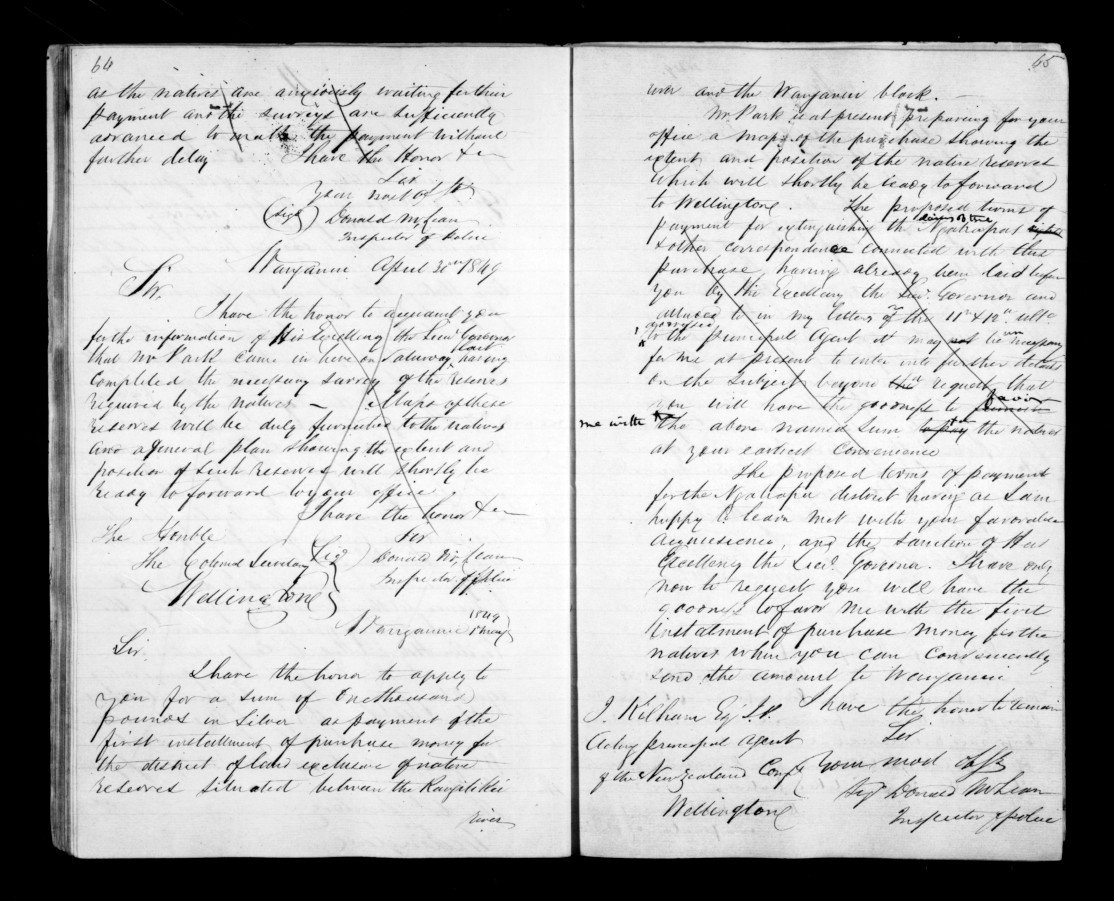 64
as the natives are anxiously waiting for their
payment and the surveys are sufficiently
advanced to make the payment without
further delay I have the Honor &c
Sir
Your most ob St
(Sigd) Donald McLean
Inspector of Police
Wanganui April 30th 1849
Sir,
I have the honor to acquaint you
for the information of His Excellency the Lieut Governor
that Mr Park came in here on Saturday last having
completed the necessary survey of the reserves
required by the natives – Maps of these
reserves will be duly furnished to the natives
and a general plan showing the extent and
position of such reserves will shortly be
ready to forward to your office
I have the honor &c
Sir
The Honble
The Colonial Secretary (Sigd) Donald McLean
Wellington Inspector of Police
1849
Wanganui May
Sir.
I have the honor to apply to
you for a sum of One thousand
pounds in Silver as payment of the
first installment of purchase money for
the district of land exclusive of native
reserves situated between the Rangitikei
river
65
river and the Wanganui block. –
Mr Park is at present preparing for your
office a map of the purchase showing the
extent and position of the native reserves
which will shortly be ready to forward
to Wellington. The proposed terms of
payment for extinguishing the Ngatiapas
& other correspondence connected with this
purchase, having already been laid before
you by His Excellency the Lieut. Governor and
alluded to in my letters of the 11th & 12th
addressed
to the Principal Agent it may not be unnecessary
for me at present to enter into further details
on the subject beyond the request that
you will have the goodness to favor
me with the above named sum to pay the natives
at your earliest convenience
The proposed terms of payment
for the Ngatiapa district having as I am
happy to learn met with your favorable
acquiescence, and the sanction of His
Excellency the Lieut. Governor. I have only
now to request you will have the
goodness to favor me with the first
instalment of purchase money for the
natives when you can conveniently
send the amount to Wanganui
I have the honor to remain
J. Kelham Esq J.P. Sir
Acting principal agent
of the New Zealand Compy Your most obt St
Sigd Donald McLean
Wellington Inspector of Police